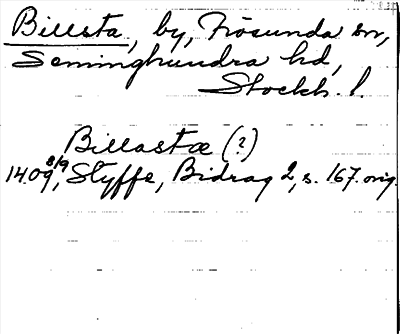 Billsta, by, Frösunda sn,
Seminghundra hd,
Stockh. l.
Billastæ (?)
1409 8/9, Styffe, Bidrag 2, s. 167. orig.